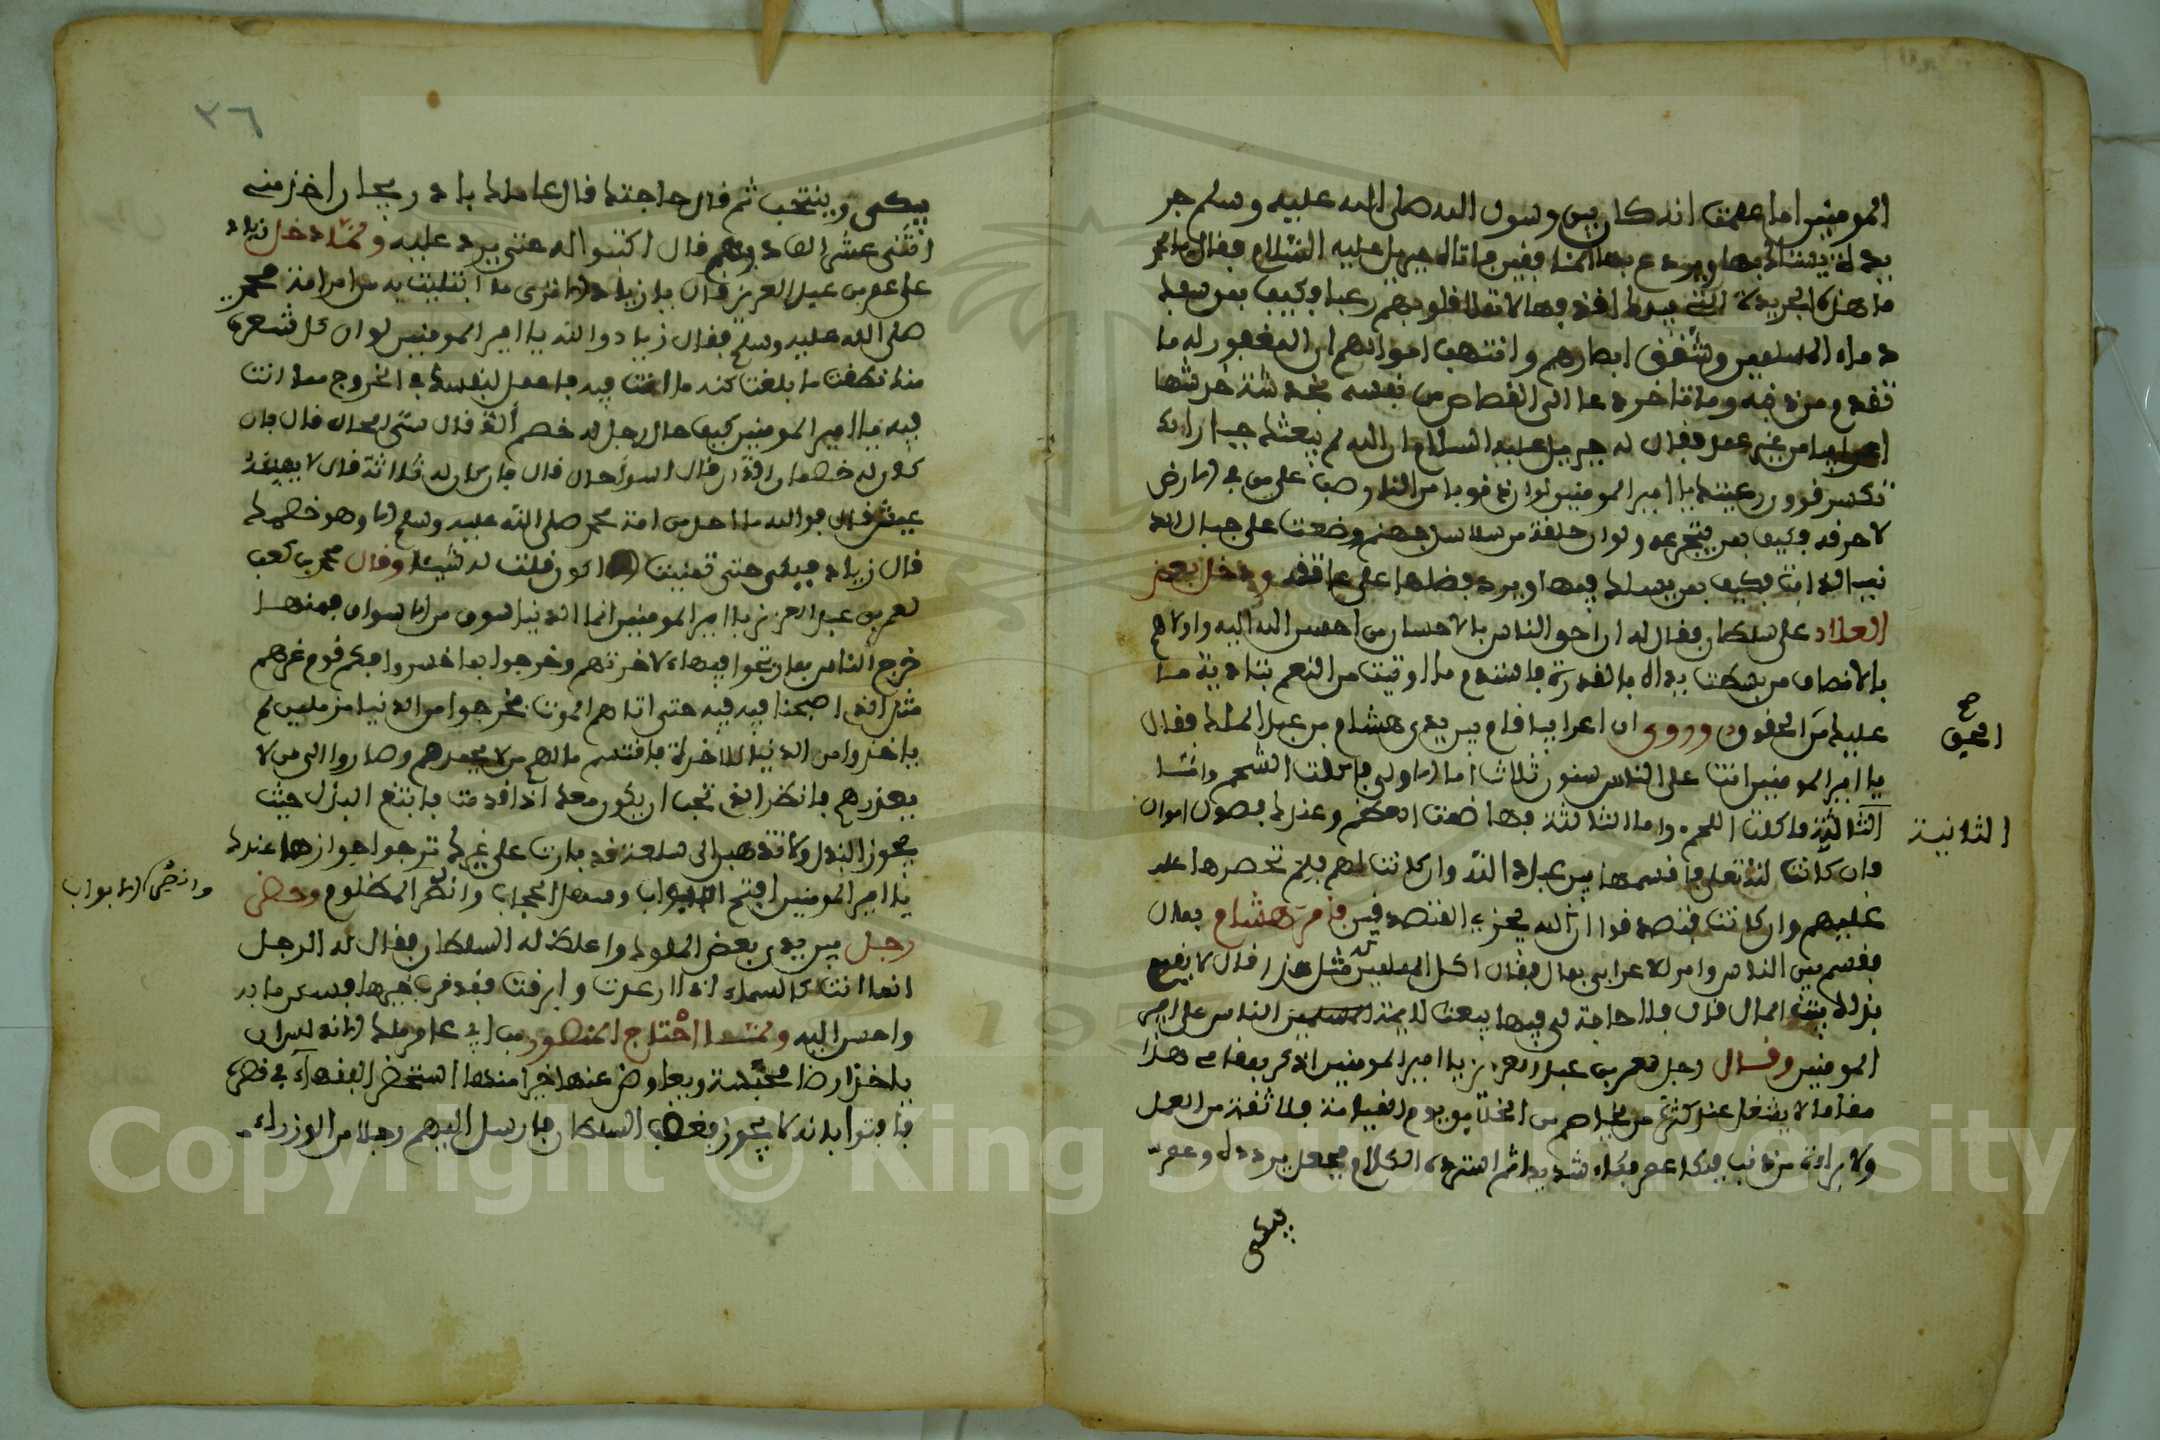 المومنين اما علمت انه كان بين رسول الله صلى الله عليه وسلم جر
يدة يستاك بها ويردع بها المنافقين فاتاه جبريل عليه السلام فقال يا محمد
ما هذه الجريدة التي بيدك اقذفها لا تملا قلوبهم رعبا وكيف بمن سفك
دماء المسلمين وشقق ابشارهم وانتهب اموالهم ان المغفور له ما
تقدم من ذنبه وما تاخر دعا الى القصاص من نفسه بخدشة خدشها
اعرابيا من غير عمد فقال له جبريل عليه السلام ان الله لم يبعثك جبارا
تكسر قرون رعيتك يا امير المومنين لو ان ذنوبا من النار صب على من في الارض
لاحرقه فكيف بمن يتجرعه ولو ان حلقة من سلاسل جهنم وضعت على جبال الد
نيا لذابت فكيف بمن يسلك فيها ويرد فضلها على عاتقه ودخل بعض
العلماء على سلطان فقال له ان احق الناس بالاحسان من احسن الله اليه واولاهم
بالانصاف من بسطت يداه بالقدرة فاستدم ما اوتيت من النعم بتادية ما
عليك من الحقوق وروي ان اعرابيا قام بين يدي هشام بن عبد الملك فقال
يا امير المومنين اتت على الناس سنون ثلاث اما الاولى فاكلت الشحم واما
الثانية فاكلت اللحم واما الثالثة فهاضت العظم وعندك فضول اموال
فان كانت لله تعلى فاقسمها بين عباد الله وان كانت لهم فلم تحصرها
عليهم وان كانت فتصدقوا ان الله يجزي المتصدقين فامر هشام بمال
فقسم بين الناس وامر للاعرابي بمال فقال اكل المسلمين له مثل هذا قال لا يقوم
بذلك بيت المال قال فلا حاجة لي فيما يبعث لائمة الناس على امير
المومنين وقال رجل لعمر بن عبد العزيز يا امير المومنين اذكر بمقامي هذا
مقاما لا يشغل عنك كثرة من يخاصم من الخلايق يوم القيامة بلا ثقة من العمل
ولا براءة من ذنب فبكا عمر بكاء شديدا ثم استرده الكلام فجعل يردده وعمر
يبكي
الحق صح
الثانية
٣٦
يبكي وينتحب ثم قال حاجتك قال عاملك باذربيجان اخذ مني
اثني عشر الف درهم قال اكتبوا له حتى يرد عليه ولما دخل زياد
على عمر بن عبد العزيز قال يا زياد الا ترى ما ابتليت به من امر امة محمد
صلى الله عليه وسلم فقال زياد والله يا امير المومنين لو ان كل شعرة
منك نطقت ما بلغت كنه ما انت فيه فاعمل لنفسك في الخروج مما انت
فيه يا امير المومنين كيف حال رجل له خصم ألد قال سيء الحال قال فان
كان له خصمان الدان قال اسوأ حال قال فان كان له ثلاثة قال لا يهنئه
عيش قال فوالله ما احد من امة محمد صلى الله عليه وسلم الا وهو خصم لك
قال زياد فبكى حتى تمنيت الا اكون قلت له شيئا وقال محمد بن كعب
لعمر بن عبد العزيز يا امير المومنين انما الدنيا سوق من الاسواق فمنها
خرج الناس بما ربحوا فيها لاخرتهم وخرجوا بما خسروا فكم قوم غرهم
مثل الذي اصبحنا فيه حتى اتاهم الموت فخرجوا من الدنيا مرملين لم
ياخذوا من الدنيا للاخرة فاقتسم مالهم من لا يحمدهم وصاروا الى من لا
يعذرهم فانظر الذي تحب ان يكون معك اذا قدمت فابتغ البدل حيث
يجوز البدل ولا تذهبن الى سلعة قد بارت على غيرك ترجوا جوازها عندك
يا امير المومنين افتح الابواب وسهل الحجاب وانصر المظلوم وحضر
رجل بين يدي بعض الملوك واغلظ له السلطان فقال له الرجل
انما انت كالسماء اذا ارعدت وابرقت فقد قرب خيرها فسكن ما به
واحسن اليه ولما احتاج المنصور بن ابي عامر ملك الاندلس ان
ياخذ ارضا محبسة ويعاوض عنها خيرا منها استحضر الفقهاء في قصره
فافتوا بانه لا يجوز فغضب السلطان فارسل اليهم رجلا من الوزراء
وانصر الابواب